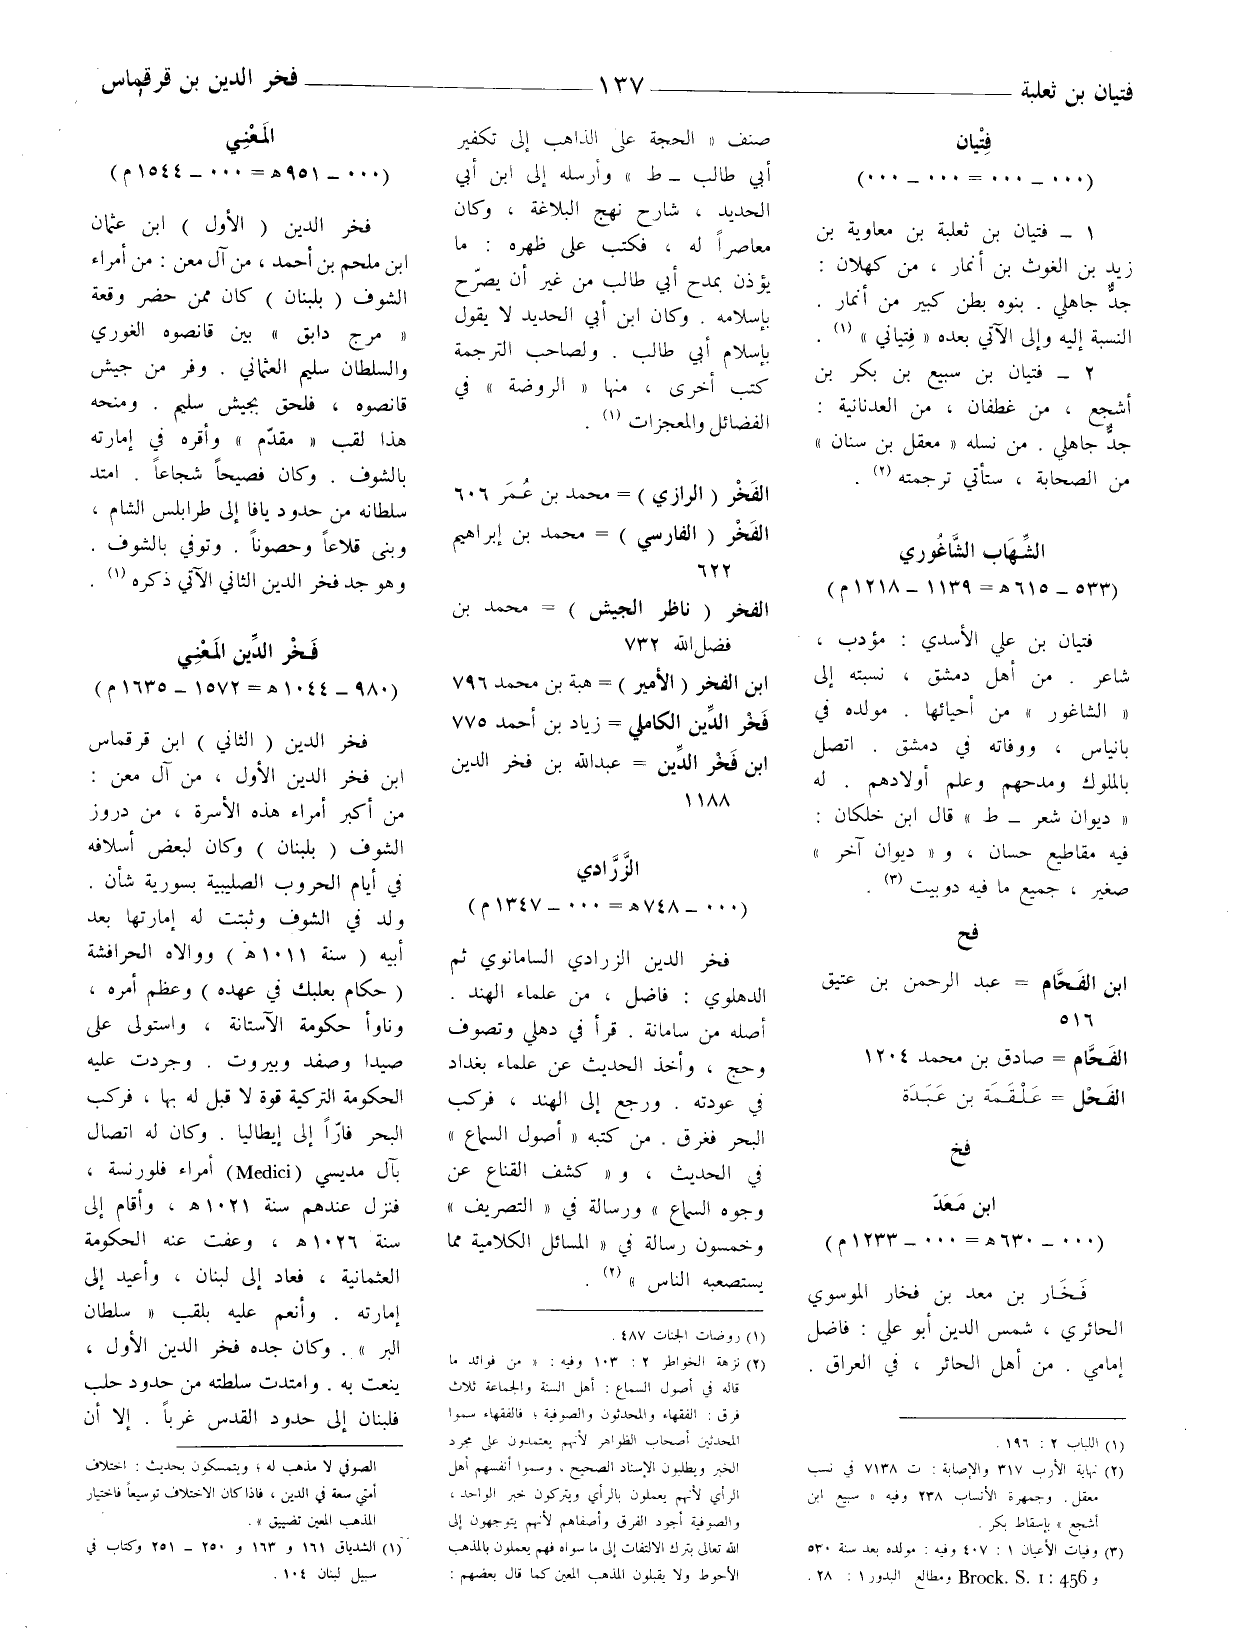 فتيان بن ثعلبة
١٣٧
فخر الدين بن قرقماس
فِتْيان
(٠٠٠ ــ ٠٠٠ = ٠٠٠ ــ ٠٠٠)
١ ــ فتيان بن ثعلبة بن معاوية بن
زيد بن الغوث بن أنمار ، من كهلان :
جدٌّ جاهلي . بنوه بطن كبير من أنمار .
النسبة إليه وإلى الآتي بعده « فِتياني » (١) .
٢ ــ فتيان بن سبيع بن بكر بن
أشجع ، من غطفان ، من العدنانية :
جدٌّ جاهلي . من نسله « معقل بن سنان »
من الصحابة ، ستأتي ترجمته (٢) .
الشِّهَاب الشَّاغُوري
(٥٣٣ ــ ٦١٥ ه = ١١٣٩ ــ ١٢١٨ م)
فتيان بن علي الأسدي : مؤدب ،
شاعر . من أهل دمشق ، نسبته إلى
« الشاغور » من أحيائها . مولده في
بانياس ، ووفاته في دمشق . اتصل
بالملوك ومدحهم وعلم أولادهم . له
« ديوان شعر ــ ط » قال ابن خلكان :
فيه مقاطيع حسان ، و « ديوان آخر »
صغير ، جميع ما فيه دوبيت (٣) .
فح
ابن الفَحَّام = عبد الرحمن بن عتيق
٥١٦
الفَحَّام = صادق بن محمد ١٢٠٤
الفَحْل = عَلْقَمَة بن عَبَدَة
فخ
ابن مَعَدّ
(٠٠٠ ــ ٦٣٠ ه = ٠٠٠ ــ ١٢٣٣ م)
فَخَار بن معد بن فخار الموسوي
الحائري ، شمس الدين أبو علي : فاضل
إمامي . من أهل الحائر ، في العراق .
(١) اللباب ٢ : ١٩٦ .
(٢) نهاية الأرب ٣١٧ والإصابة : ت ٧١٣٨ في نسب
معقل . وجمهرة الأنساب ٢٣٨ وفيه « سبيع ابن
أشجع » بإسقاط بكر .
(٣) وفيات الأعيان ١ : ٤٠٧ وفيه : مولده بعد سنة ٥٣٠
و Brock. S. 1 : 456 ومطالع البدور ١ : ٢٨ .
صنف « الحجة على الذاهب إلى تكفير
أبي طالب ــ ط » وأرسله إلى ابن أبي
الحديد ، شارح نهج البلاغة ، وكان
معاصراً له ، فكتب على ظهره : ما
يؤذن بمدح أبي طالب من غير أن يصرّح
بإسلامه . وكان ابن أبي الحديد لا يقول
بإسلام أبي طالب . ولصاحب الترجمة
كتب أخرى ، منها « الروضة » في
الفضائل والمعجزات (١) .
الفَخْر ( الرازي ) = محمد بن عُمَر ٦٠٦
الفَخْر ( الفارسي ) = محمد بن إبراهيم
٦٢٢
الفخر ( ناظر الجيش ) = محمد بن
فضل الله ٧٣٢
ابن الفخر ( الأمير ) = هبة بن محمد ٧٩٦
فَخْر الدِّين الكاملي = زياد بن أحمد ٧٧٥
ابن فَخْر الدِّين = عبدالله بن فخر الدين
١١٨٨
الزَّرَّادي
(٠٠٠ ــ ٧٤٨ ه = ٠٠٠ ــ ١٣٤٧ م)
فخر الدين الزرادي السامانوي ثم
الدهلوي : فاضل ، من علماء الهند .
أصله من سامانة . قرأ في دهلي وتصوف
وحج ، وأخذ الحديث عن علماء بغداد
في عودته . ورجع إلى الهند ، فركب
البحر فغرق . من كتبه « أصول السماع »
في الحديث ، و « كشف القناع عن
وجوه السماع » ورسالة في « التصريف »
وخمسون رسالة في « المسائل الكلامية مما
يستصعبه الناس » (٢) .
(١) روضات الجنات ٤٨٧ .
(٢) نزهة الخواطر ٢ : ١٠٣ وفيه : « من فوائد ما
قاله في أصول السماع : أهل السنة والجماعة ثلاث
فرق : الفقهاء والمحدثون والصوفية ؛ فالفقهاء سموا
المحدثين أصحاب الظواهر لأنهم يعتمدون على مجرد
الخبر ويطلبون الإسناد الصحيح ، وسموا أنفسهم أهل
الرأي لأنهم يعملون بالرأي ويتركون خبر الواحد ،
والصوفية أجود الفرق وأصفاهم لأنهم يتوجهون إلى
الله تعالى بترك الالتفات إلى ما سواه فهم يعملون بالمذهب
الأحوط ولا يقبلون المذهب المعين كما قال بعضهم :
المَعْني
(٠٠٠ ــ ٩٥١ ه = ٠٠٠ ــ ١٥٤٤ م)
فخر الدين ( الأول ) ابن عثمان
ابن ملحم بن أحمد ، من آل معن : من أمراء
الشوف ( بلبنان ) كان ممن حضر وقعة
« مرج دابق » بين قانصوه الغوري
والسلطان سليم العثماني . وفر من جيش
قانصوه ، فلحق بجيش سليم . ومنحه
هذا لقب « مقدّم » وأقره في إمارته
بالشوف . وكان فصيحاً شجاعاً . امتد
سلطانه من حدود يافا إلى طرابلس الشام ،
وبنى قلاعاً وحصوناً . وتوفي بالشوف .
وهو جد فخر الدين الثاني الآتي ذكره (١) .
فَخْر الدِّين المَعْني
(٩٨٠ ــ ١٠٤٤ ه = ١٥٧٢ ــ ١٦٣٥ م)
فخر الدين ( الثاني ) ابن قرقماس
ابن فخر الدين الأول ، من آل معن :
من أكبر أمراء هذه الأسرة ، من دروز
الشوف ( بلبنان ) وكان لبعض أسلافه
في أيام الحروب الصليبية بسورية شأن .
ولد في الشوف وثبتت له إمارتها بعد
أبيه ( سنة ١٠١١ ه ) ووالاه الحرافشة
( حكام بعلبك في عهده ) وعظم أمره ،
وناوأ حكومة الآستانة ، واستولى على
صيدا وصفد وبيروت . وجردت عليه
الحكومة التركية قوة لا قبل له بها ، فركب
البحر فارّاً إلى إيطاليا . وكان له اتصال
بآل مديسي (Medici) أمراء فلورنسة ،
فنزل عندهم سنة ١٠٢١ ه ، وأقام إلى
سنة ١٠٢٦ ه ، وعفت عنه الحكومة
العثمانية ، فعاد إلى لبنان ، وأعيد إلى
إمارته . وأنعم عليه بلقب « سلطان
البر » . وكان جده فخر الدين الأول ،
ينعت به . وامتدت سلطته من حدود حلب
فلبنان إلى حدود القدس غرباً . إلا أن
الصوفي لا مذهب له ؛ ويتمسكون بحديث : اختلاف
أمتي سعة في الدين ، فاذا كان الاختلاف توسيعاً فاختيار
المذهب المعين تضييق » .
(١) الشدياق ١٦١ و ١٦٣ و ٢٥٠ ــ ٢٥١ وكتاب في
سبيل لبنان ١٠٤ .